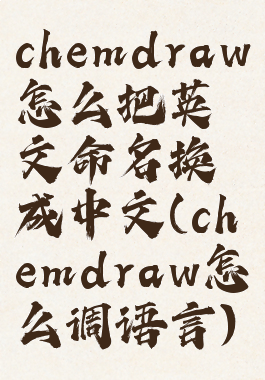 chemdraw
怎么把英
文命名换
成中文(ch
emdraw怎
么调语言)